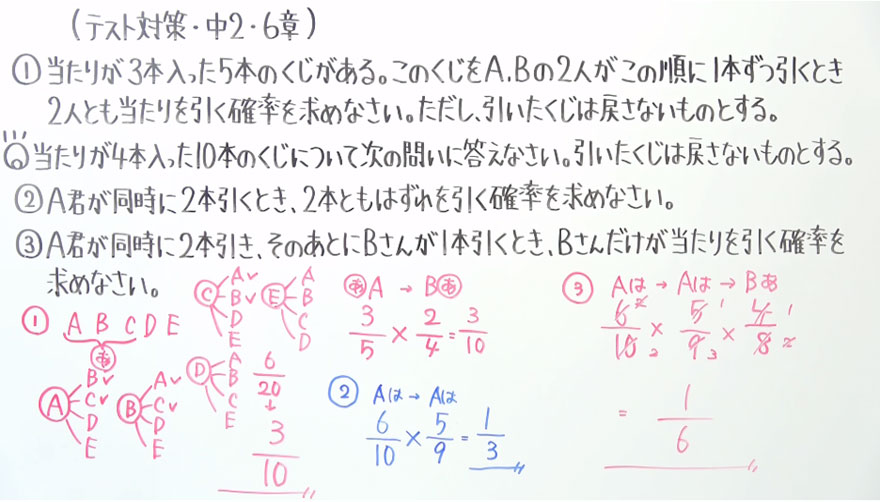 (テスト対策・中2・6章)
①当たりが3本入った5本のくじがある。このくじをA,Bの2人がこの順に1本ずつ引くとき
2人とも当たりを引く確率を求めなさい。ただし、引いたくじは戻さないものとする。
当たりが4本入った10本のくじについて次の問いに答えなさい。引いたくじは戻さないものとする。
②A君が同時に2本引くとき、2本ともはずれを引く確率を求めなさい。
③A君が同時に2本引き、そのあとにBさんが1本引くとき、Bさんだけが当たりを引く確率を
求めなさい。
① A B C D E
あ
A B✓ C✓ D E
B A✓ C✓ D E
C A✓ B✓ D E
D A B C E
E A B C D
6/20
↓
3/10
あA → Bあ
3/5 × 2/4 = 3/10
② Aは → Aは
6/10 × 5/9 = 1/3
③ Aは → Aは → Bあ
6/10 × 5/9 × 4/8
2 1 1
2 3 2
= 1/6